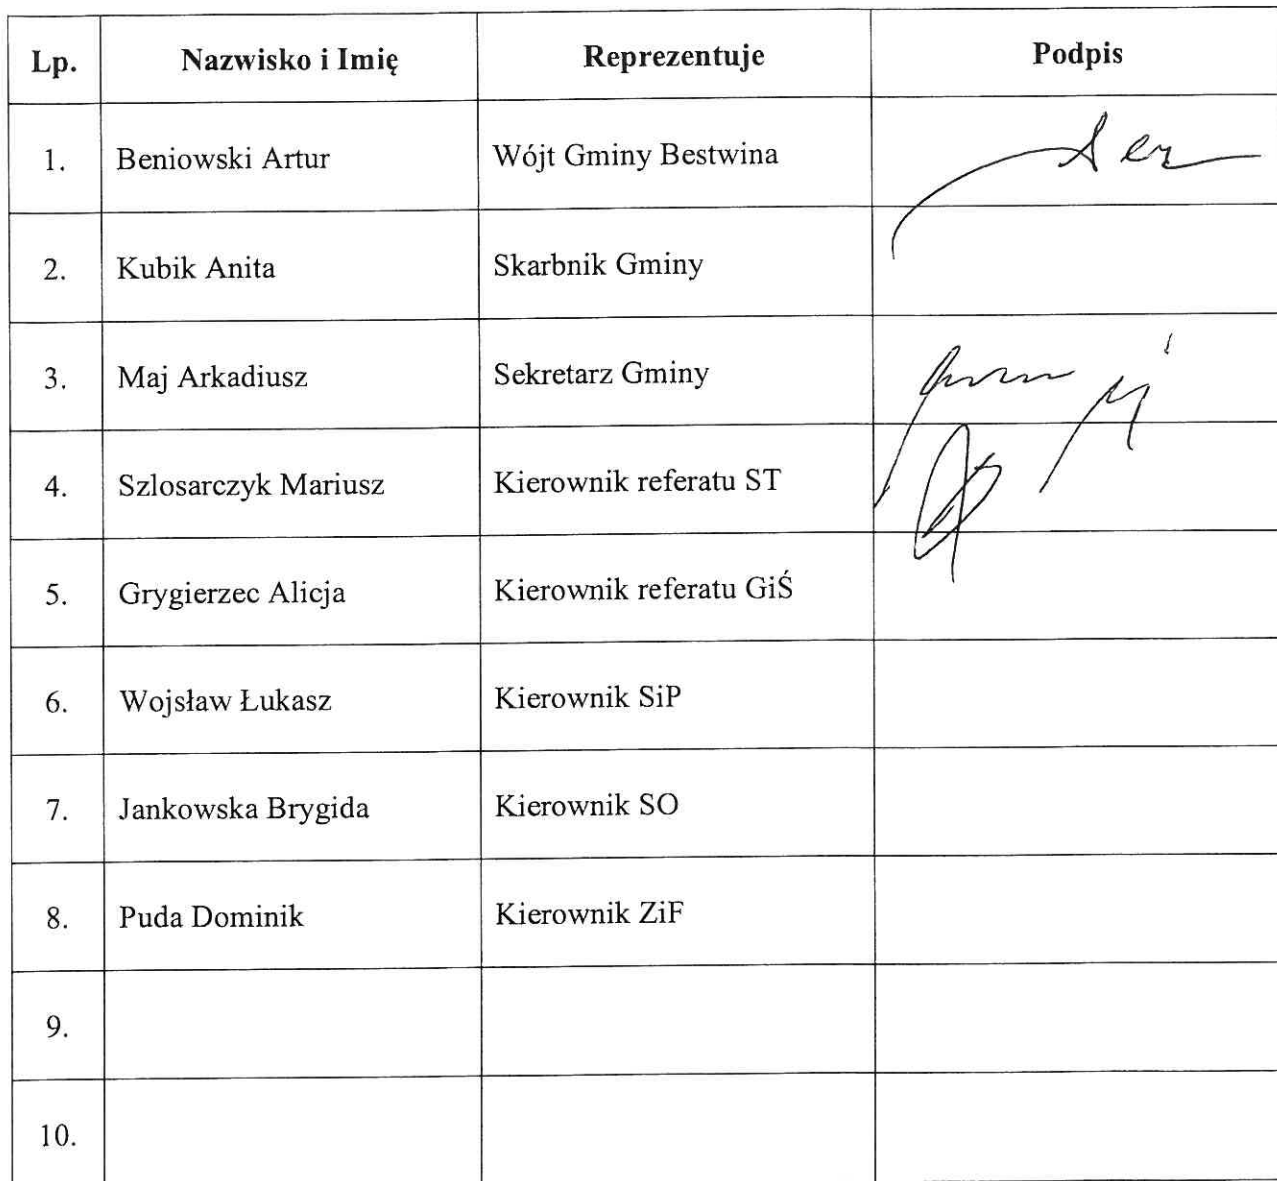 Lp. Nazwisko i Imię Reprezentuje Podpis
1. Beniowski Artur Wójt Gminy Bestwina
2. Kubik Anita Skarbnik Gminy
3. Maj Arkadiusz Sekretarz Gminy
4. Szlosarczyk Mariusz Kierownik referatu ST
5. Grygierzec Alicja Kierownik referatu GiŚ
6. Wojsław Łukasz Kierownik SiP
7. Jankowska Brygida Kierownik SO
8. Puda Dominik Kierownik ZiF
9.
10.